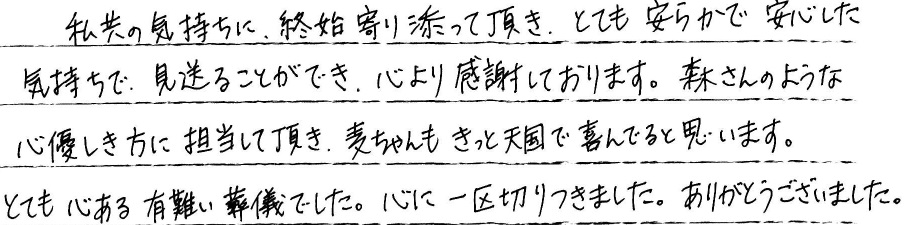 私共の気持ちに、終始寄り添って頂き、とても安らかで安心した
気持ちで、見送ることができ、心より感謝しております。森さんのような
心優しき方に担当して頂き、麦ちゃんもきっと天国で喜んでると思います。
とても心ある有難い葬儀でした。心に一区切りつきました。ありがとうございました。